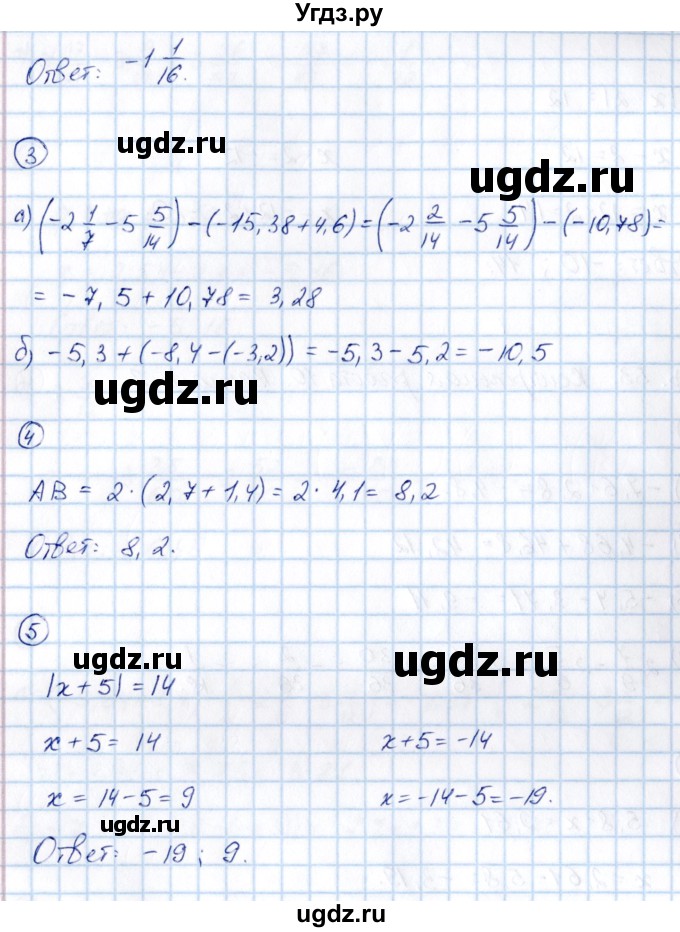 Угдз.ру
Ответ: -1 1/16.
ugdz.ru
3
ugdz.ru
а) (-2 1/7 - 5 5/14) - (-15,38 + 4,6) = (-2 2/14 - 5 5/14) - (-10,78) =
= -7,5 + 10,78 = 3,28
б) -5,3 + (-8,4 - (-3,2)) = -5,3 - 5,2 = -10,5
ugdz.ru
4
AB = 2·(2,7 + 1,4) = 2·4,1 = 8,2
Ответ: 8,2.
5
ugdz.ru
ugdz.ru
|x + 5| = 14
x + 5 = 14 x + 5 = -14
x = 14 - 5 = 9 x = -14 - 5 = -19.
ugdz.ru
Ответ: -19; 9.
ugdz.ru